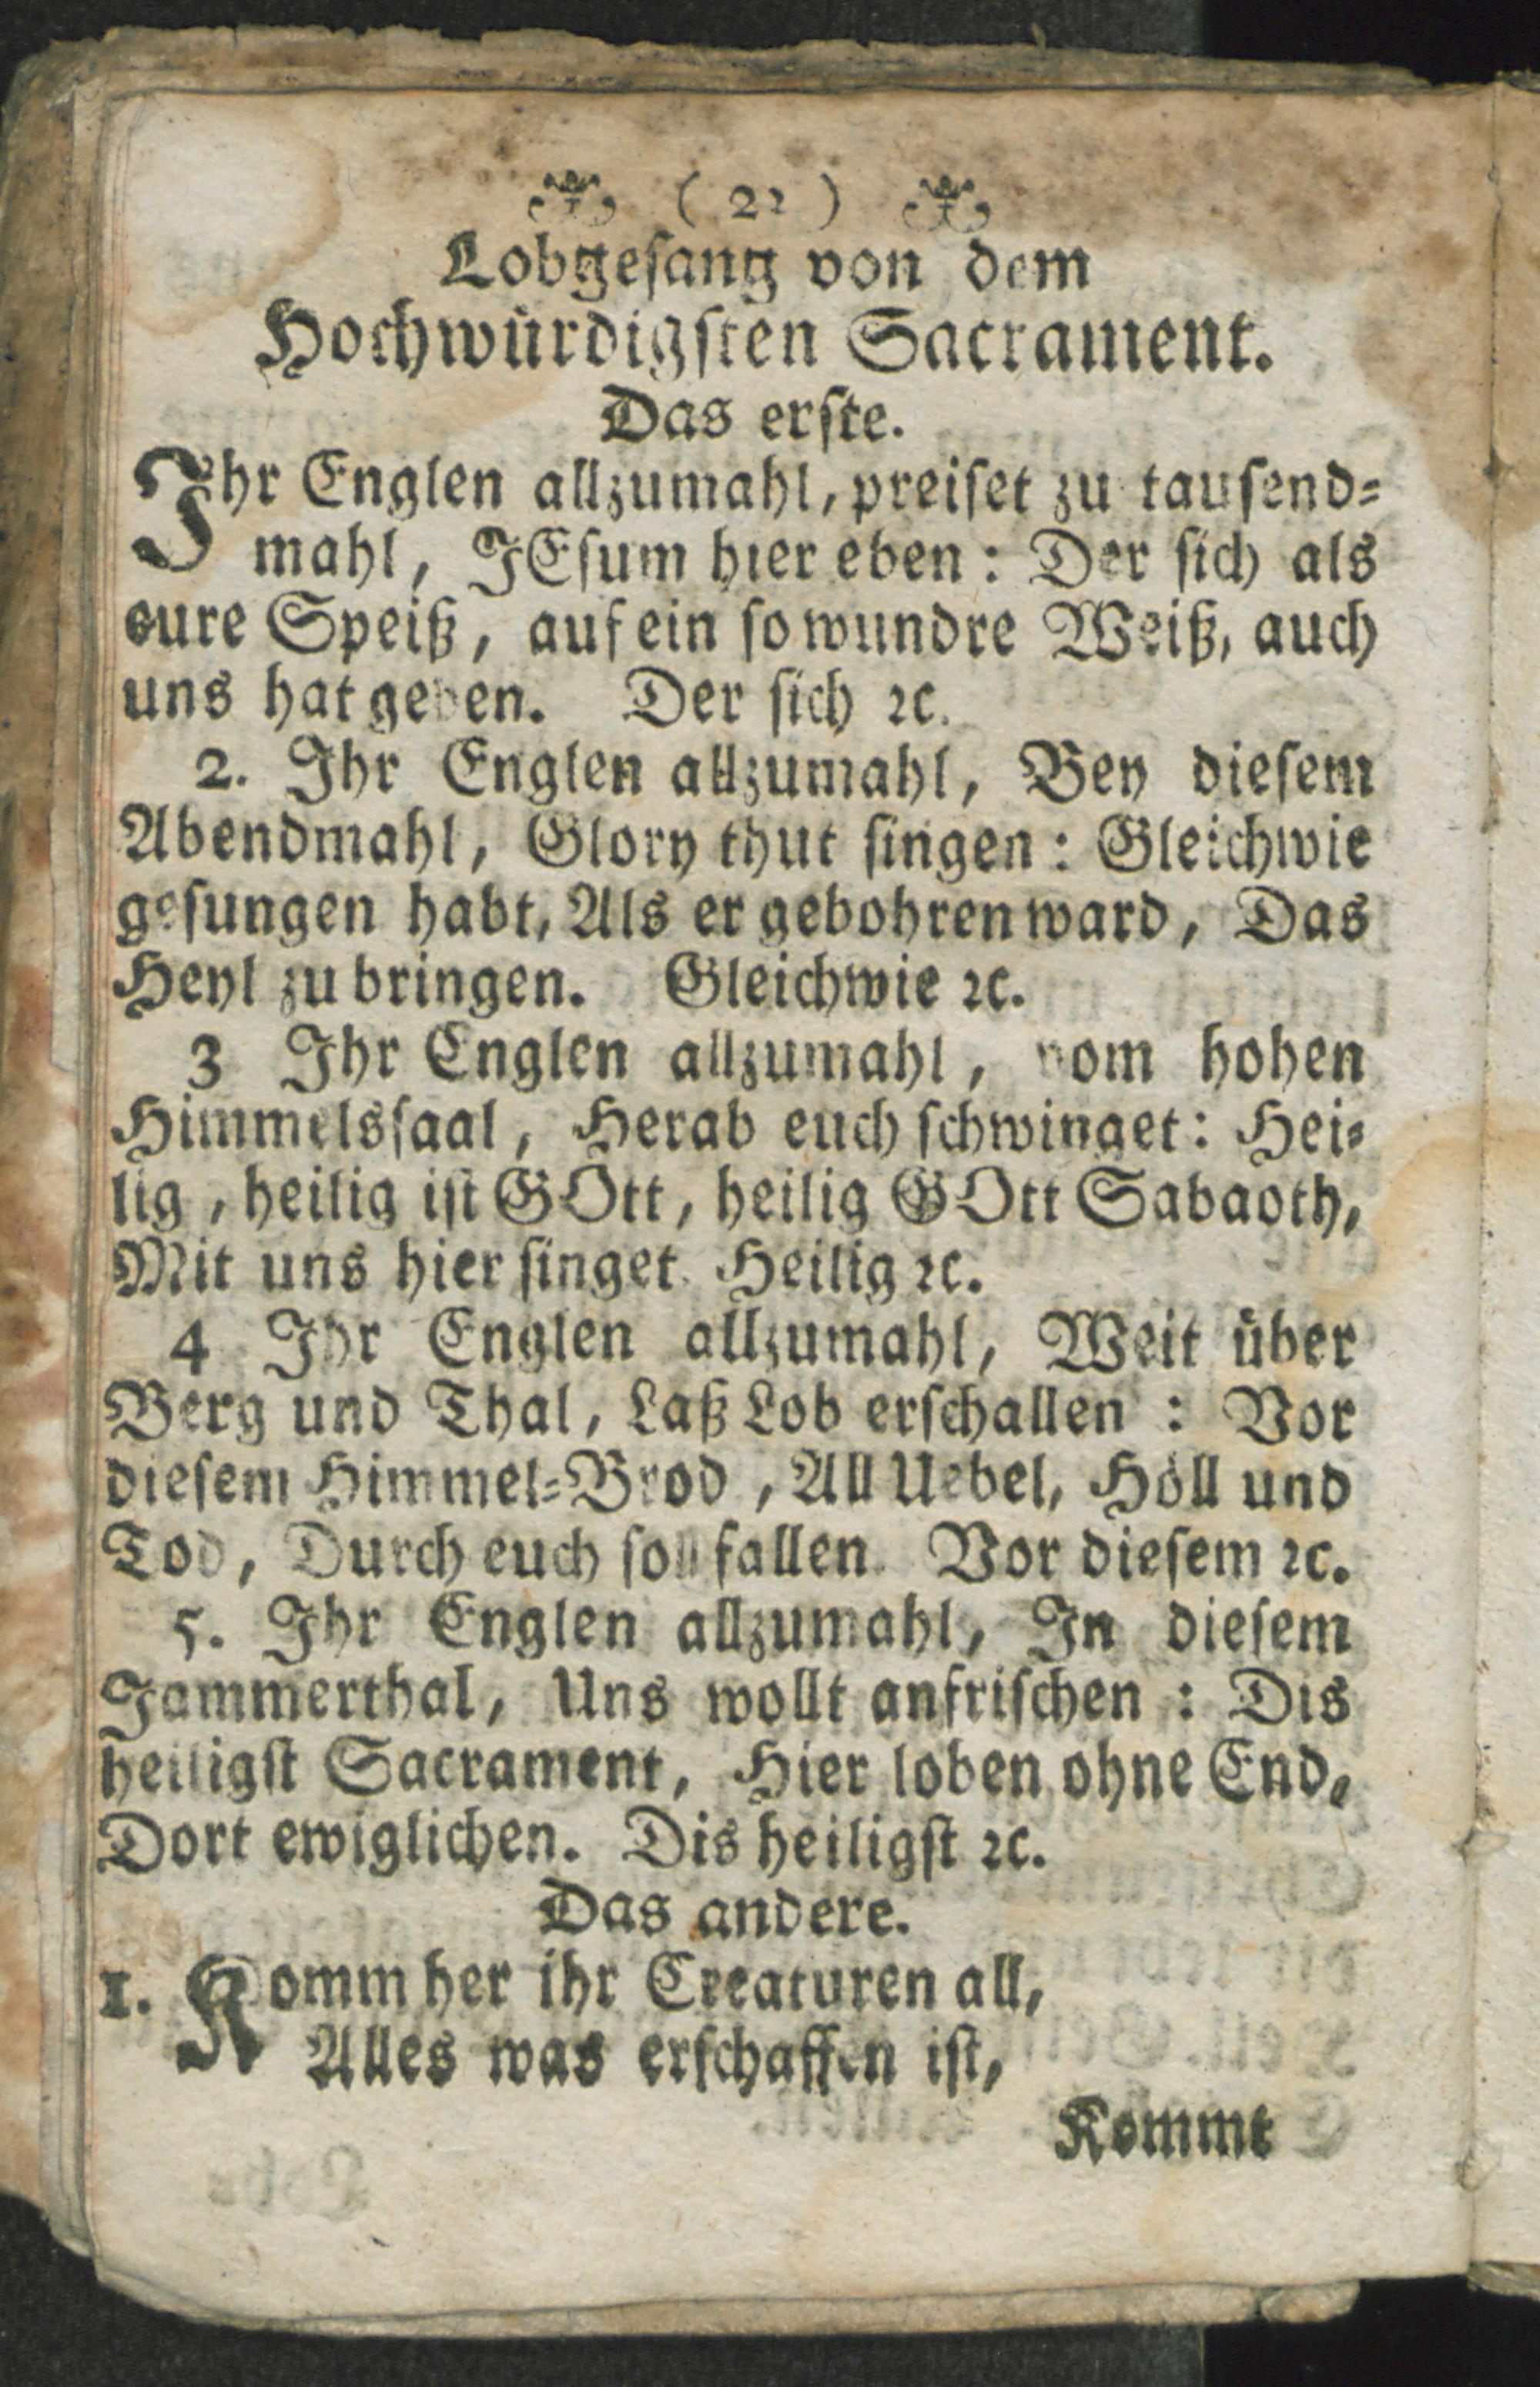 ( 22 )
Lobgesang von dem
Hochwürdigsten Sacrament.
Das erste.
Ihr Englen allzumahl, preiset zu tausend=
mahl, JEsum hier eben: Der sich als
eure Speiß, auf ein so wundre Weiß, auch
uns hat geben. Der sich ꝛc.
2. Ihr Englen allzumahl, Bey diesem
Abendmahl, Glory thut singen: Gleichwie
gesungen habt, Als er gebohren ward, Das
Heyl zu bringen. Gleichwie ꝛc.
3 Ihr Englen allzumahl, vom hohen
Himmelssaal, Herab euch schwinget: Hei=
lig, heilig ist GOtt, heilig GOtt Sabaoth,
Mit uns hier singet. Heilig ꝛc.
4 Ihr Englen allzumahl, Weit über
Berg und Thal, Laß Lob erschallen: Vor
diesem Himmel=Brod, All Uebel, Höll und
Tod, Durch euch soll fallen. Vor diesem ꝛc.
5. Ihr Englen allzumahl, In diesem
Jammerthal, Uns wollt anfrischen: Dis
heiligst Sacrament, Hier loben ohne End,
Dort ewiglichen. Dis heiligst ꝛc.
Das andere.
1. Komm her ihr Creaturen all,
Alles was erschaffen ist,
Kommt